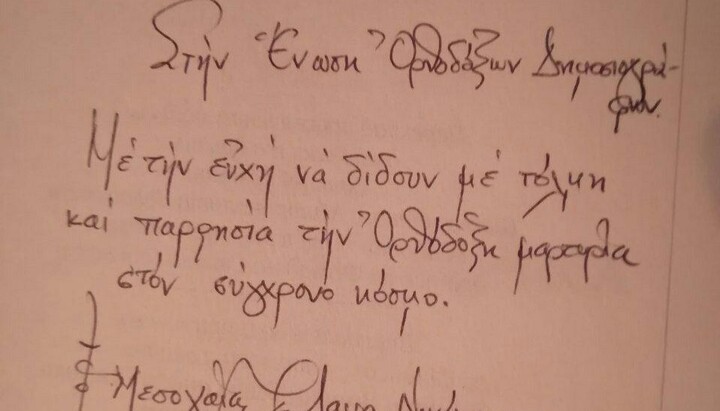 Στὴν Ἕνωση Ὀρθοδόξων Δημοσιογρά-
φων.
Μὲ τὴν εὐχὴ νὰ δίδουν μὲ τόλμη
καὶ παρρησία τὴν Ὀρθόδοξη μαρτυρία
στὸν σύγχρονο κόσμο.
Μεσογαίας